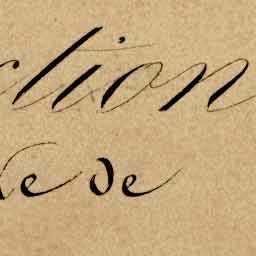 ction
e de